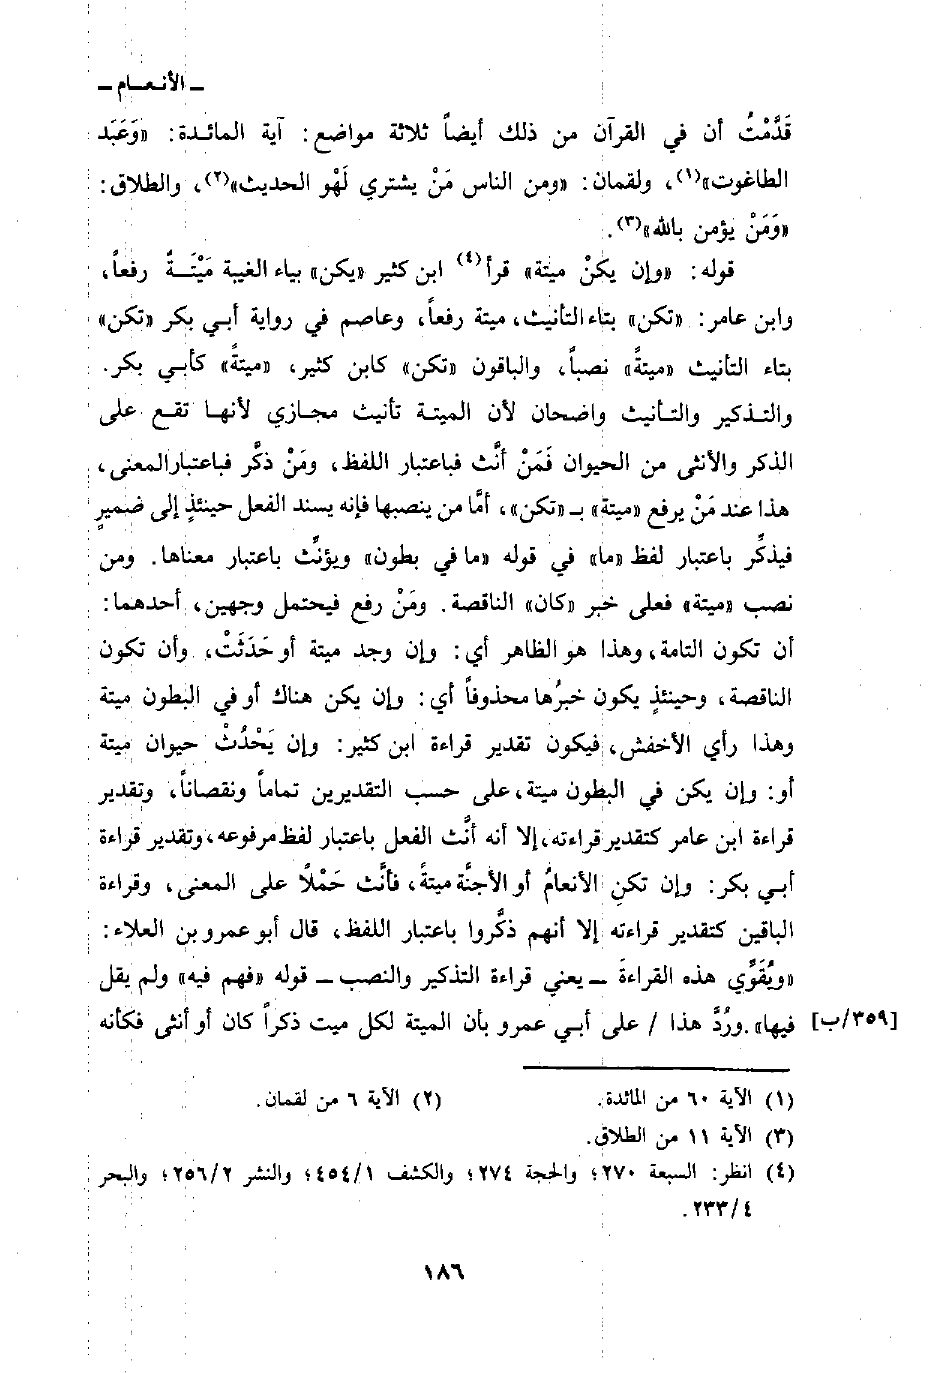 ـ الأنعـام ـ
قَدَّمْتُ أن في القرآن من ذلك أيضاً ثلاثة مواضع: آية المائدة: «وَعَبَد
الطاغوت»(١)، ولقمان: «ومن الناس مَنْ يشتري لَهْو الحديث»(٢)، والطلاق:
«وَمَنْ يؤمن بالله»(٣).
قوله: «وإن يكنْ ميتة» قرأ(٤) ابن كثير «يكن» بياء الغيبة مَيْتَةٌ رفعاً،
وابن عامر: «تكن» بتاء التأنيث، ميتة رفعاً، وعاصم في رواية أبي بكر «تكن»
بتاء التأنيث «ميتةً» نصباً، والباقون «تكن» كابن كثير، «ميتةً» كأبي بكر.
والتذكير والتأنيث واضحان لأن الميتة تأنيث مجازي لأنها تقع على
الذكر والأنثى من الحيوان فَمَنْ أنَّث فباعتبار اللفظ، ومَنْ ذكَّر فباعتبار المعنى،
هذا عند مَنْ يرفع «ميتة» بـ «تكن»، أمَّا من ينصبها فإنه يسند الفعل حينئذٍ إلى ضميرٍ
فيذكِّر باعتبار لفظ «ما» في قوله «ما في بطون» ويؤنَّث باعتبار معناها. ومن
نصب «ميتة» فعلى خبر «كان» الناقصة. ومَنْ رفع فيحتمل وجهين، أحدهما:
أن تكون التامة، وهذا هو الظاهر أي: وإن وجد ميتة أو حَدَثَتْ، وأن تكون
الناقصة، وحينئذٍ يكون خبرُها محذوفاً أي: وإن يكن هناك أو في البطون ميتة
وهذا رأي الأخفش، فيكون تقدير قراءة ابن كثير: وإن يَحْدُثْ حيوان ميتة
أو: وإن يكن في البطون ميتة، على حسب التقديرين تماماً ونقصاناً، وتقدير
قراءة ابن عامر كتقدير قراءته، إلا أنه أنَّث الفعل باعتبار لفظ مرفوعه، وتقدير قراءة
أبي بكر: وإن تكنِ الأنعامُ أو الأجنَّة ميتةً، فأنَّث حَمْلاً على المعنى، وقراءة
الباقين كتقدير قراءته إلا أنهم ذكَّروا باعتبار اللفظ، قال أبو عمرو بن العلاء:
«ويُقَوِّي هذه القراءةَ ـ يعني قراءة التذكير والنصب ـ قوله «فهم فيه» ولم يقل
فيها». ورُدَّ هذا / على أبي عمرو بأن الميتة لكل ميت ذكراً كان أو أنثى فكأنه [٣٥٩/ب]
(١) الآية ٦٠ من المائدة. (٢) الآية ٦ من لقمان.
(٣) الآية ١١ من الطلاق.
(٤) انظر: السبعة ٢٧٠؛ والحجة ٢٧٤؛ والكشف ٤٥٤/١؛ والنشر ٢٥٦/٢؛ والبحر
٢٣٣/٤.
١٨٦